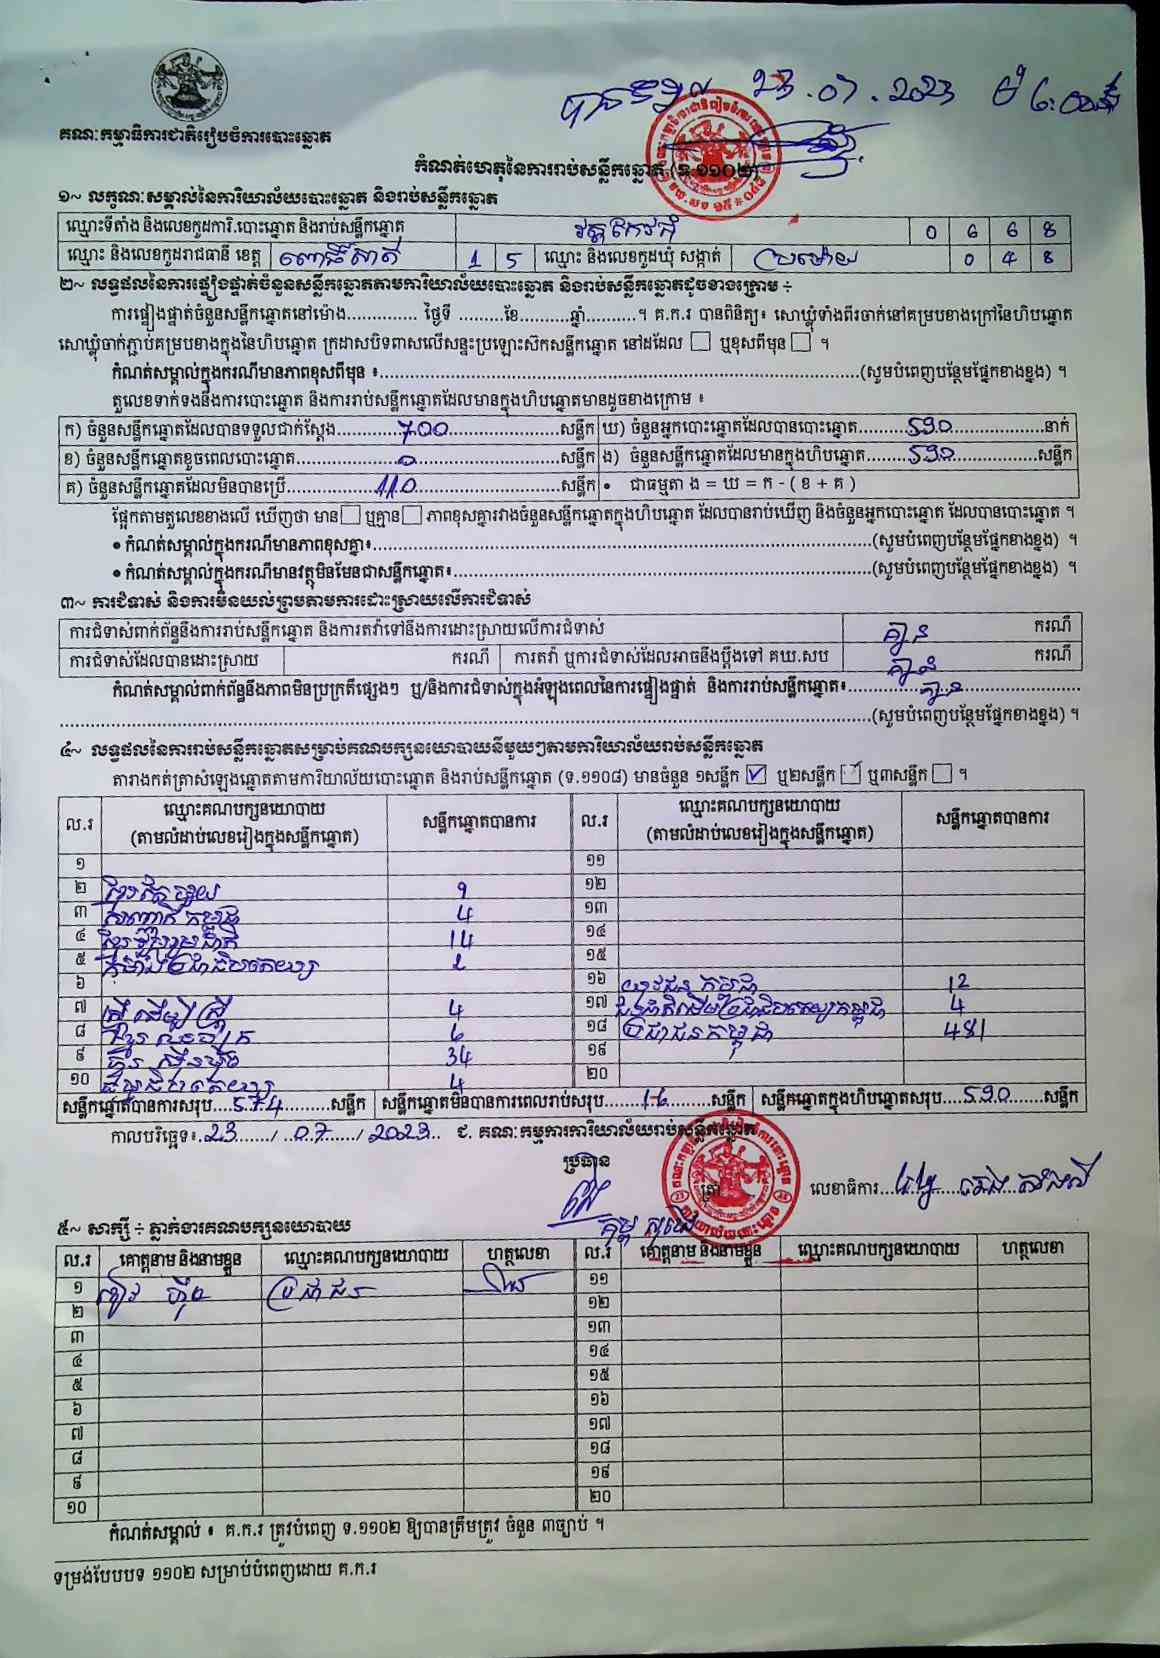 បានទទួល 23.07.2023 ម៉
គណៈកម្មាធិការជាតិរៀបចំការបោះឆ្នោត
កំណត់ហេតុនៃការរាប់សន្លឹកឆ្នោត (ទ.១១០២)
១~ លក្ខណៈសម្គាល់នៃការិយាល័យបោះឆ្នោត និងរាប់សន្លឹកឆ្នោត
ឈ្មោះទីតាំង និងលេខកូដការិ.បោះឆ្នោត និងរាប់សន្លឹកឆ្នោត 0 6 6 8
ឈ្មោះ និងលេខកូដរាជធានី ខេត្ត ពោធិ៍សាត់ 1 5 ឈ្មោះ និងលេខកូដឃុំ សង្កាត់ ប្រម៉ោយ 0 4 8
២~ លទ្ធផលនៃការផ្ទៀងផ្ទាត់ចំនួនសន្លឹកឆ្នោតតាមការិយាល័យបោះឆ្នោត និងរាប់សន្លឹកឆ្នោតដូចខាងក្រោម ÷
ការផ្ទៀងផ្ទាត់ចំនួនសន្លឹកឆ្នោតនៅម៉ោង.............. ថ្ងៃទី .........ខែ..........ឆ្នាំ..........។ គ.ក.រ បានពិនិត្យ៖ សោឃ្លុំទាំងពីរចាក់នៅគម្របខាងក្រៅនៃហិបឆ្នោត
សោឃ្លុំចាក់ភ្ជាប់គម្របខាងក្នុងនៃហិបឆ្នោត ក្រដាសបិទពាសលើសន្ទះប្រឡោះសិកសន្លឹកឆ្នោត នៅដដែល ☐ ឬខុសពីមុន ☐ ។
កំណត់សម្គាល់ក្នុងករណីមានភាពខុសពីមុន ៖..........(សូមបំពេញបន្ថែមផ្នែកខាងខ្នង) ។
តួលេខទាក់ទងនឹងការបោះឆ្នោត និងការរាប់សន្លឹកឆ្នោតដែលមានក្នុងហិបឆ្នោតមានដូចខាងក្រោម ៖
ក) ចំនួនសន្លឹកឆ្នោតដែលបានទទួលជាក់ស្តែង..........700..........សន្លឹក ឃ) ចំនួនអ្នកបោះឆ្នោតដែលបានបោះឆ្នោត..........590..........នាក់
ខ) ចំនួនសន្លឹកឆ្នោតខូចពេលបោះឆ្នោត..........0..........សន្លឹក ង) ចំនួនសន្លឹកឆ្នោតដែលមានក្នុងហិបឆ្នោត..........590..........សន្លឹក
គ) ចំនួនសន្លឹកឆ្នោតដែលមិនបានប្រើ..........110..........សន្លឹក • ជាធម្មតា ង = ឃ = ក - ( ខ + គ )
ផ្អែកតាមតួលេខខាងលើ ឃើញថា មាន ☐ ឬគ្មាន ☐ ភាពខុសគ្នារវាងចំនួនសន្លឹកឆ្នោតក្នុងហិបឆ្នោត ដែលបានរាប់ឃើញ និងចំនួនអ្នកបោះឆ្នោត ដែលបានបោះឆ្នោត ។
• កំណត់សម្គាល់ក្នុងករណីមានភាពខុសគ្នា៖..........(សូមបំពេញបន្ថែមផ្នែកខាងខ្នង) ។
• កំណត់សម្គាល់ក្នុងករណីមានវត្ថុមិនមែនជាសន្លឹកឆ្នោត៖..........(សូមបំពេញបន្ថែមផ្នែកខាងខ្នង) ។
៣~ ការជំទាស់ និងការមិនយល់ព្រមតាមការដោះស្រាយលើការជំទាស់
ការជំទាស់ពាក់ព័ន្ធនឹងការរាប់សន្លឹកឆ្នោត និងការតវ៉ាទៅនឹងការដោះស្រាយលើការជំទាស់ គ្មាន ករណី
ការជំទាស់ដែលបានដោះស្រាយ ករណី ការតវ៉ា ឬការជំទាស់ដែលអាចនឹងប្តឹងទៅ គឃ.សប គ្មាន ករណី
កំណត់សម្គាល់ពាក់ព័ន្ធនឹងភាពមិនប្រក្រតីផ្សេងៗ ឬ/និងការជំទាស់ក្នុងអំឡុងពេលនៃការផ្ទៀងផ្ទាត់ និងការរាប់សន្លឹកឆ្នោត៖..........គ្មាន..........
..........(សូមបំពេញបន្ថែមផ្នែកខាងខ្នង) ។
៤~ លទ្ធផលនៃការរាប់សន្លឹកឆ្នោតសម្រាប់គណបក្សនយោបាយនីមួយៗតាមការិយាល័យរាប់សន្លឹកឆ្នោត
តារាងកត់ត្រាសំឡេងឆ្នោតតាមការិយាល័យបោះឆ្នោត និងរាប់សន្លឹកឆ្នោត (ទ.១១០៨) មានចំនួន ១សន្លឹក ☑ ឬ២សន្លឹក ☐ ឬ៣សន្លឹក ☐ ។
ល.រ ឈ្មោះគណបក្សនយោបាយ (តាមលំដាប់លេខរៀងក្នុងសន្លឹកឆ្នោត) សន្លឹកឆ្នោតបានការ ល.រ ឈ្មោះគណបក្សនយោបាយ (តាមលំដាប់លេខរៀងក្នុងសន្លឹកឆ្នោត) សន្លឹកឆ្នោតបានការ
១ ១១
២ ១២
៣ 4 ១៣
៤ ខ្មែររួបរួមជាតិ 14 ១៤
៥ ១៥
៦ ១៦ យុវជនកម្ពុជា 12
៧ ស្ត្រីដើម្បីស្ត្រី 4 ១៧ 4
៨ 6 ១៨ ប្រជាជនកម្ពុជា 481
៩ 34 ១៩
១០ 4 ២០
សន្លឹកឆ្នោតបានការសរុប....574..........សន្លឹក សន្លឹកឆ្នោតមិនបានការពេលរាប់សរុប..........16........សន្លឹក សន្លឹកឆ្នោតក្នុងហិបឆ្នោតសរុប....590......សន្លឹក
កាលបរិច្ឆេទ៖.23....../..07....../.2023.. ជ. គណៈកម្មការការិយាល័យរាប់សន្លឹកឆ្នោត
ប្រធាន
ត្រា
លេខាធិការ
៥~ សាក្សី ÷ ភ្នាក់ងារគណបក្សនយោបាយ
ល.រ គោត្តនាម និងនាមខ្លួន ឈ្មោះគណបក្សនយោបាយ ហត្ថលេខា ល.រ គោត្តនាម និងនាមខ្លួន ឈ្មោះគណបក្សនយោបាយ ហត្ថលេខា
១ ប្រជាជន ១១
២ ១២
៣ ១៣
៤ ១៤
៥ ១៥
៦ ១៦
៧ ១៧
៨ ១៨
៩ ១៩
១០ ២០
កំណត់សម្គាល់ ៖ គ.ក.រ ត្រូវបំពេញ ទ.១១០២ ឱ្យបានត្រឹមត្រូវ ចំនួន ៣ច្បាប់ ។
ទម្រង់បែបបទ ១១០២ សម្រាប់បំពេញដោយ គ.ក.រ